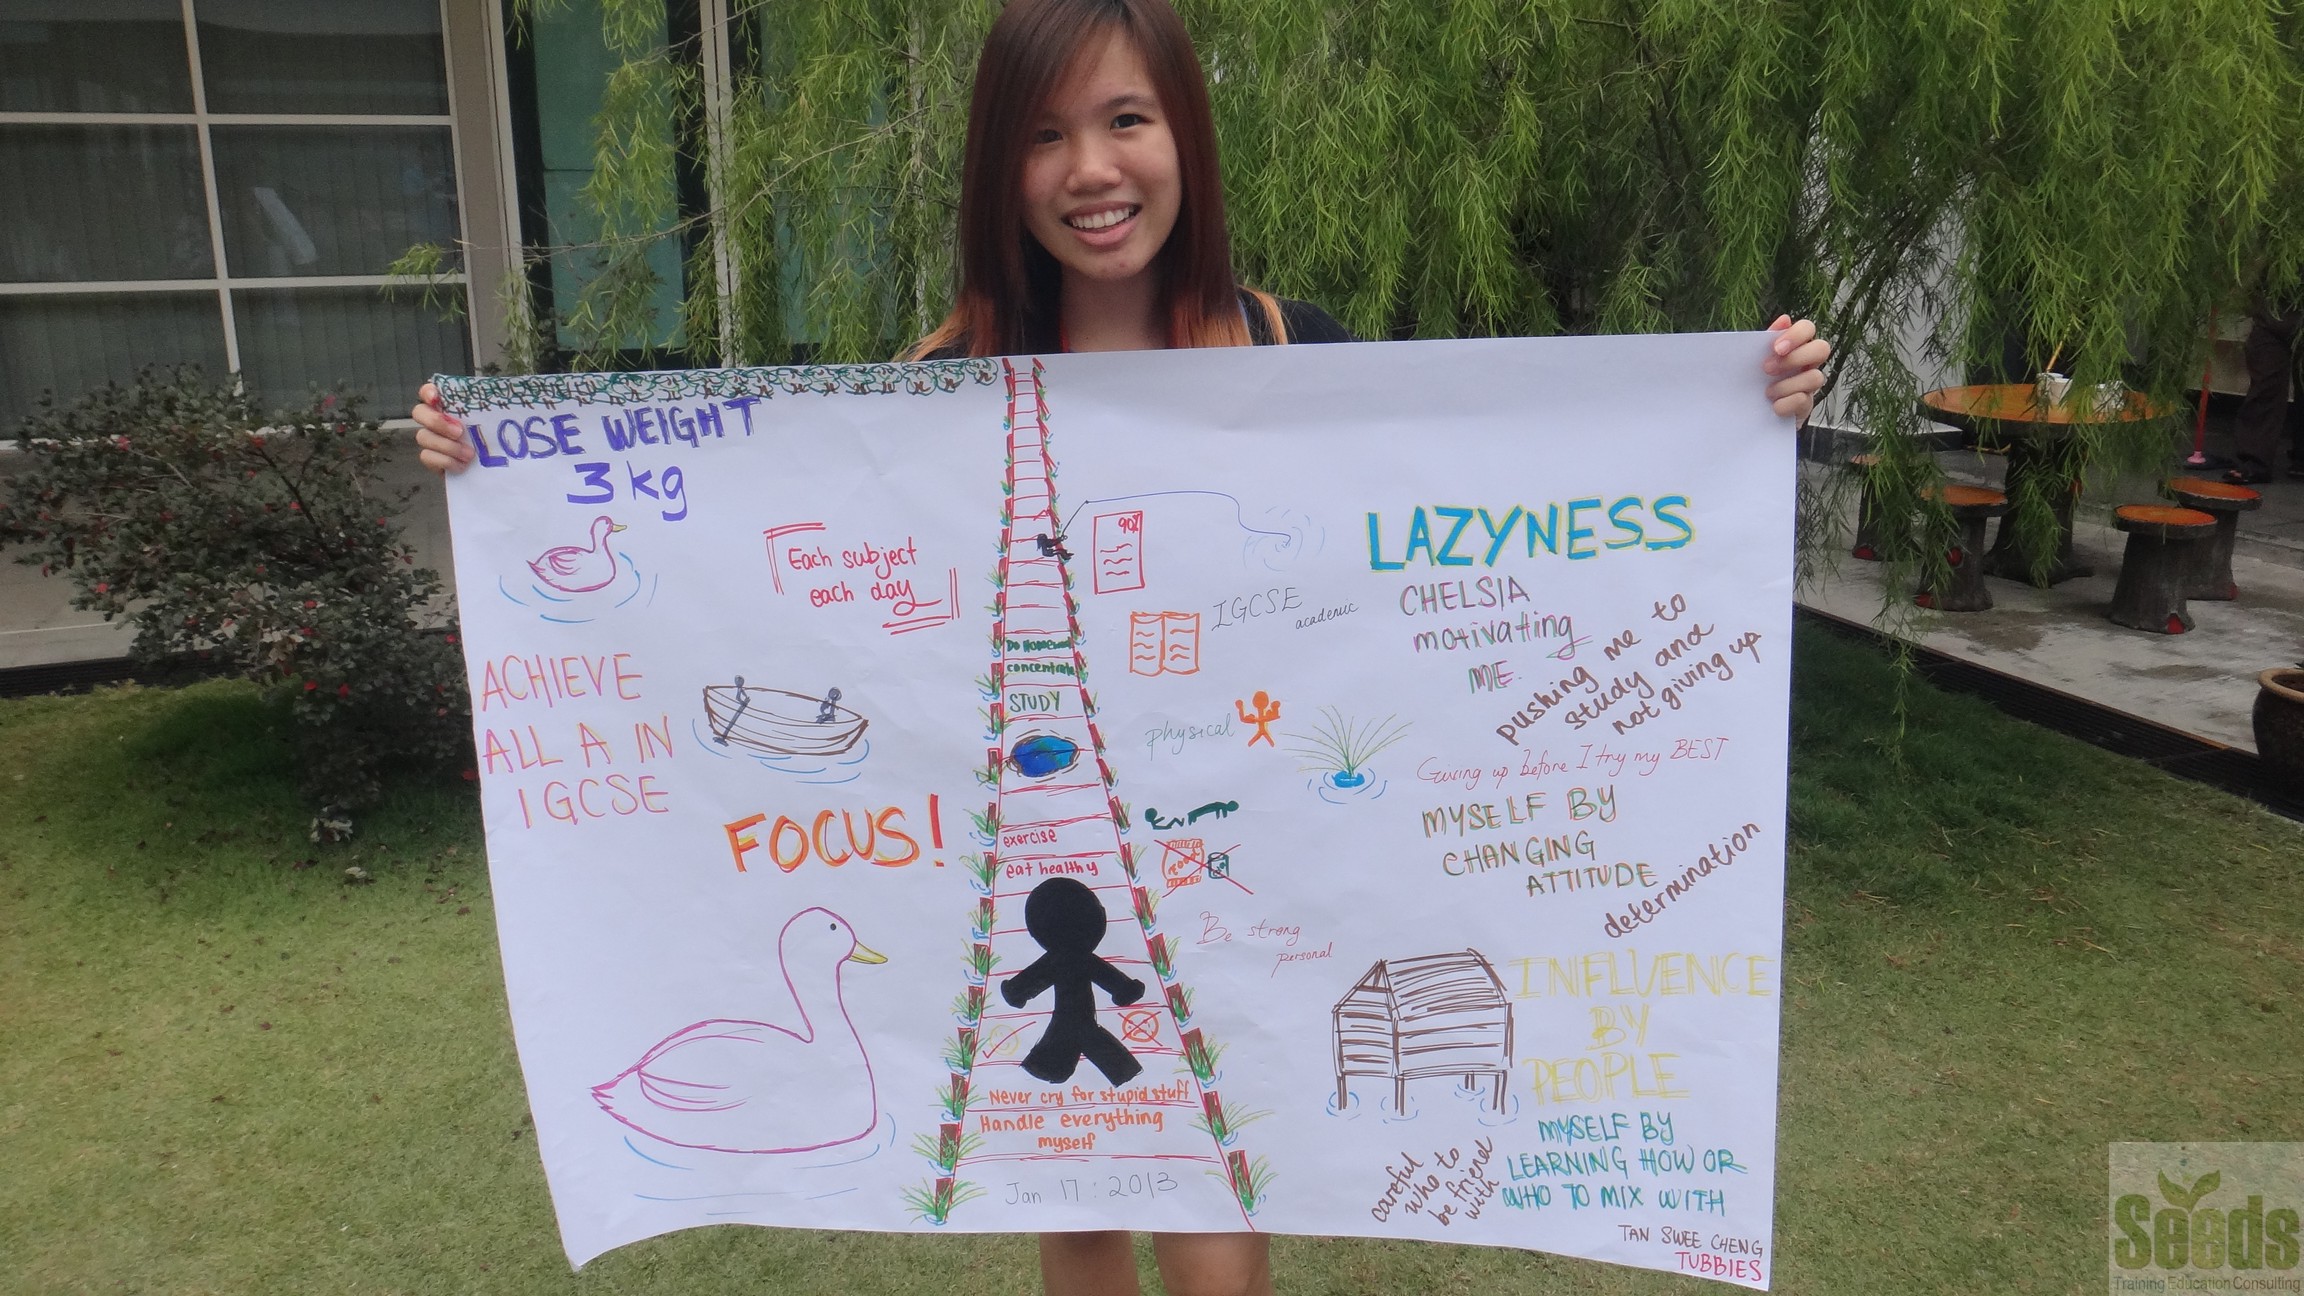 LOSE WEIGHT
3 kg
Each subject
each day
ACHIEVE
ALL A IN
IGCSE
FOCUS!
Do Homework
concentrate
STUDY
exercise
eat healthy
Never cry for stupid stuff
Handle everything
myself
Jan 17 : 2013
90%
IGCSE
academic
physical
Be strong
personal
LAZYNESS
CHELSIA
motivating
ME.
pushing me to
study and
not giving up
Giving up before I try my BEST
MYSELF BY
CHANGING
ATTITUDE
determination
INFLUENCE
BY
PEOPLE
MYSELF BY
LEARNING HOW OR
WHO TO MIX WITH
careful
who to
be friend
with
TAN SWEE CHENG
TUBBIES
Seeds
Training Education Consulting